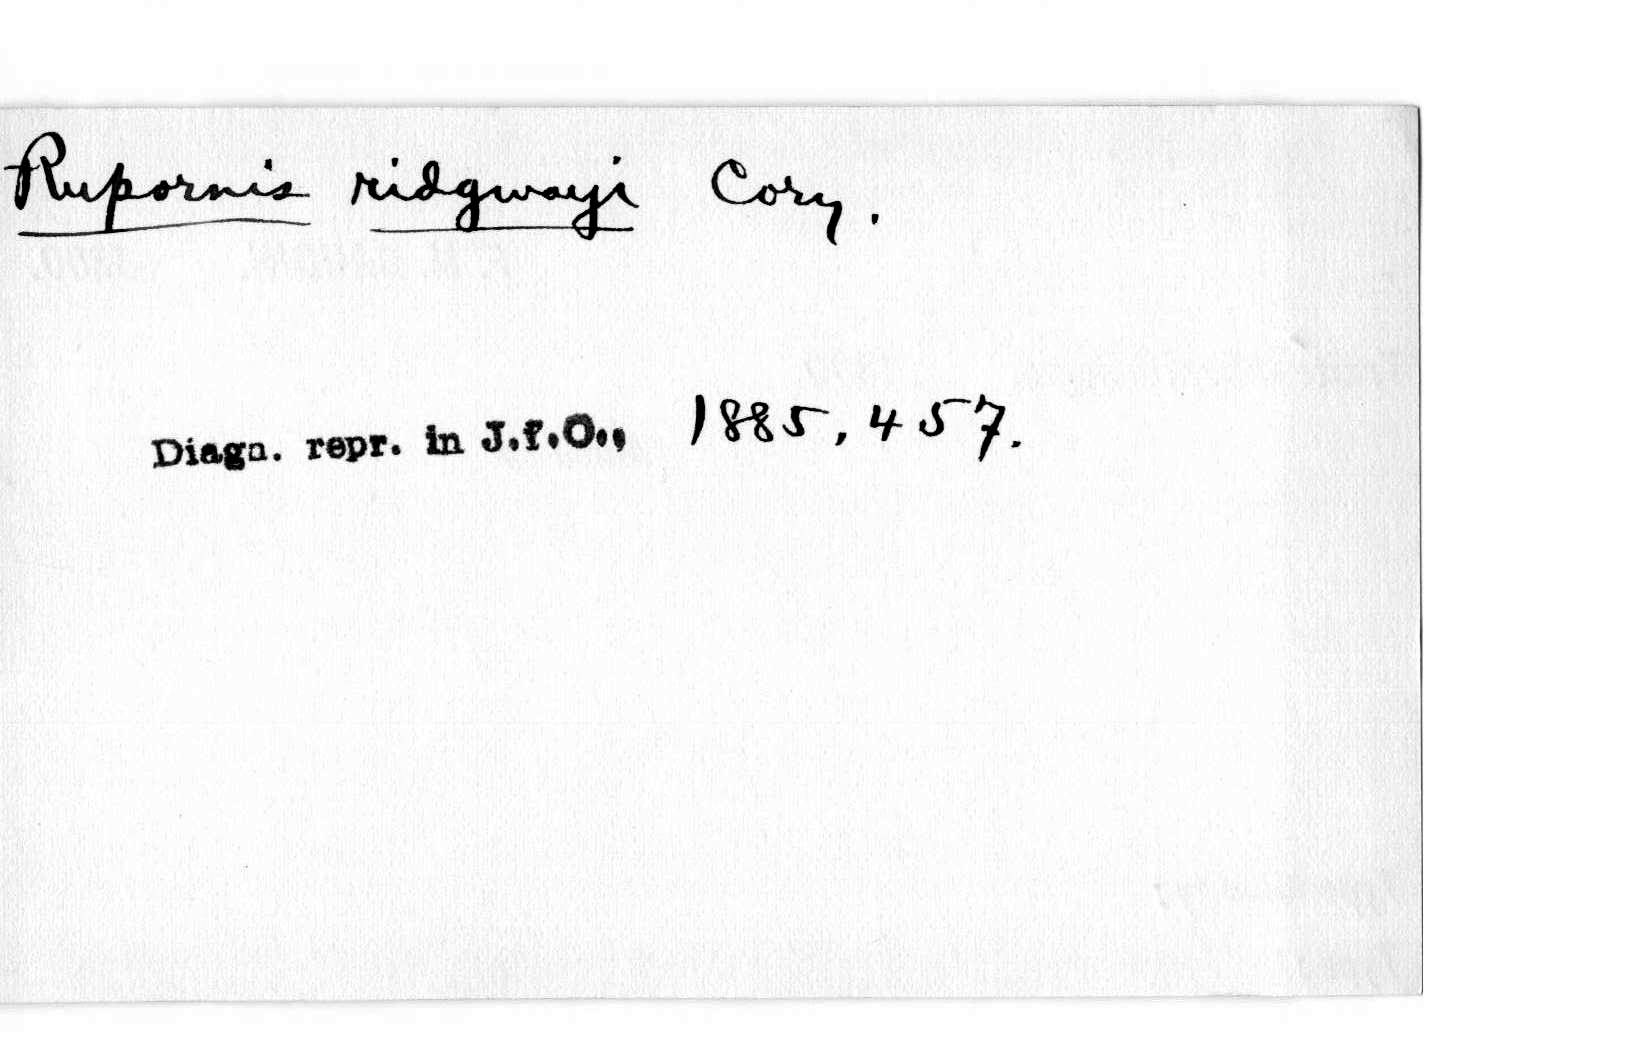 Rupornis ridgwayi Cory.
Diagn. repr. in J.f.O., 1885, 457.